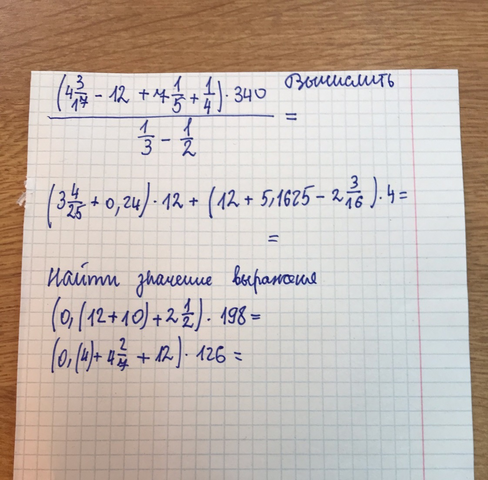 (4 3/17 - 12 + 7 1/5 + 1/4) · 340 Вычислить
/ (1/3 - 1/2) =
(3 4/25 + 0,24) · 12 + (12 + 5,1625 - 2 3/16) · 4 =
=
Найти значение выражения
(0,(12+10) + 2 1/2) · 198 =
(0,(4) + 4 2/7 + 12) · 126 =